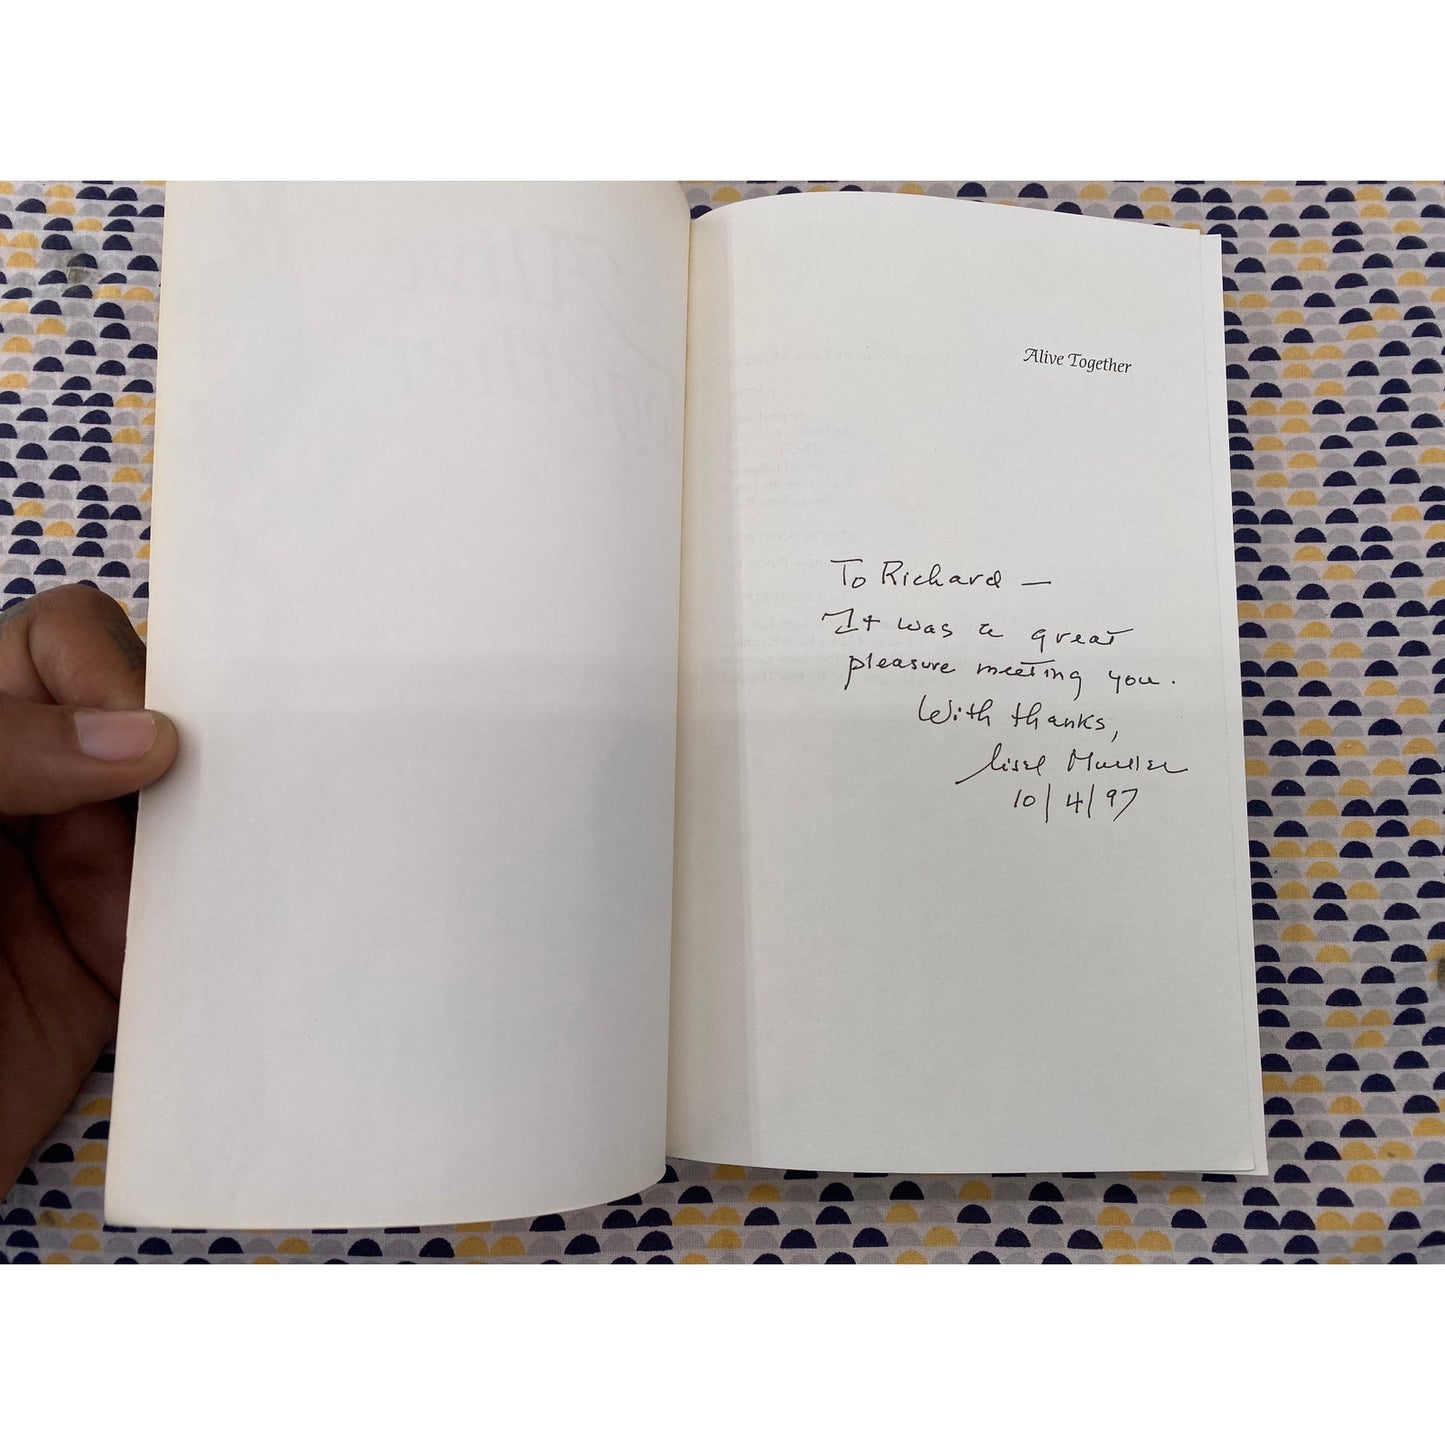 Alive Together
To Richard —
It was a great
pleasure meeting you.
With thanks,
Lisel Mueller
10/4/97